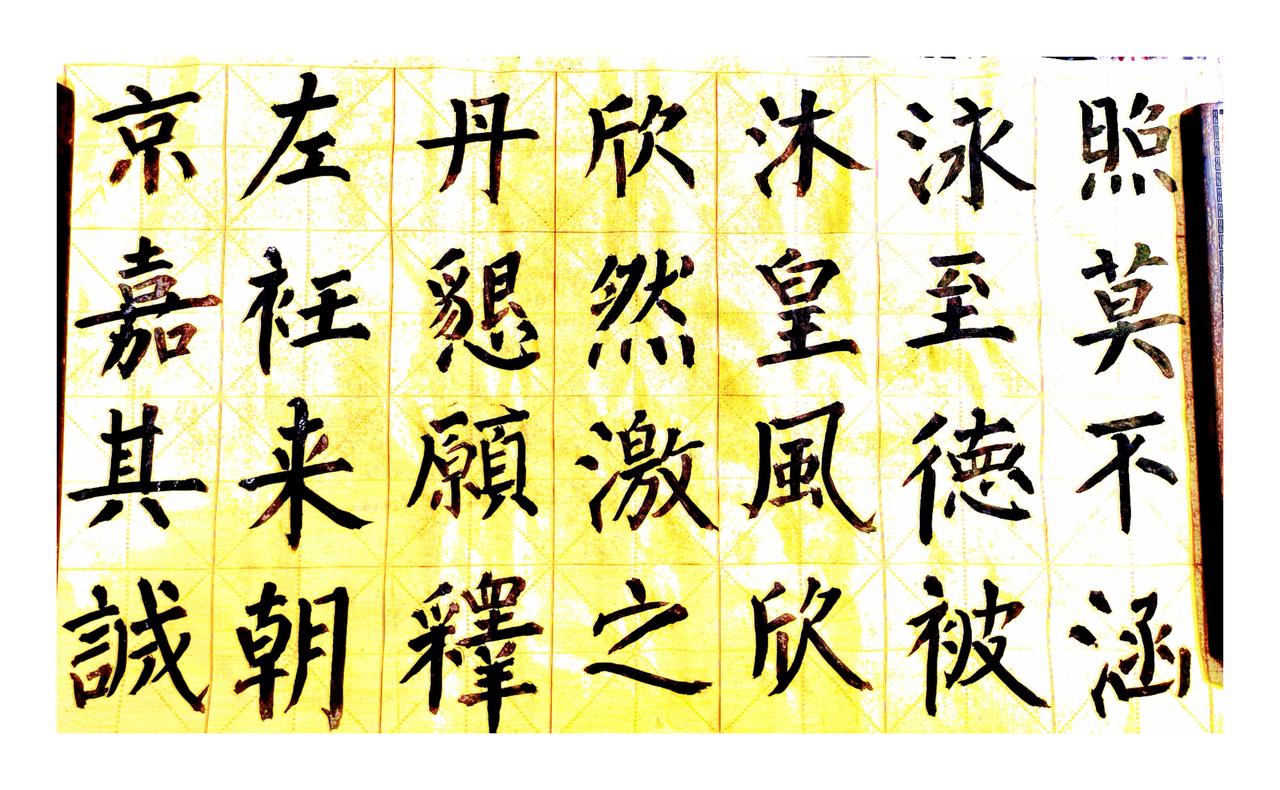 照莫不涵
泳至德被
沐皇風欣
欣然激之
丹懇願釋
左衽来朝
京嘉其誠